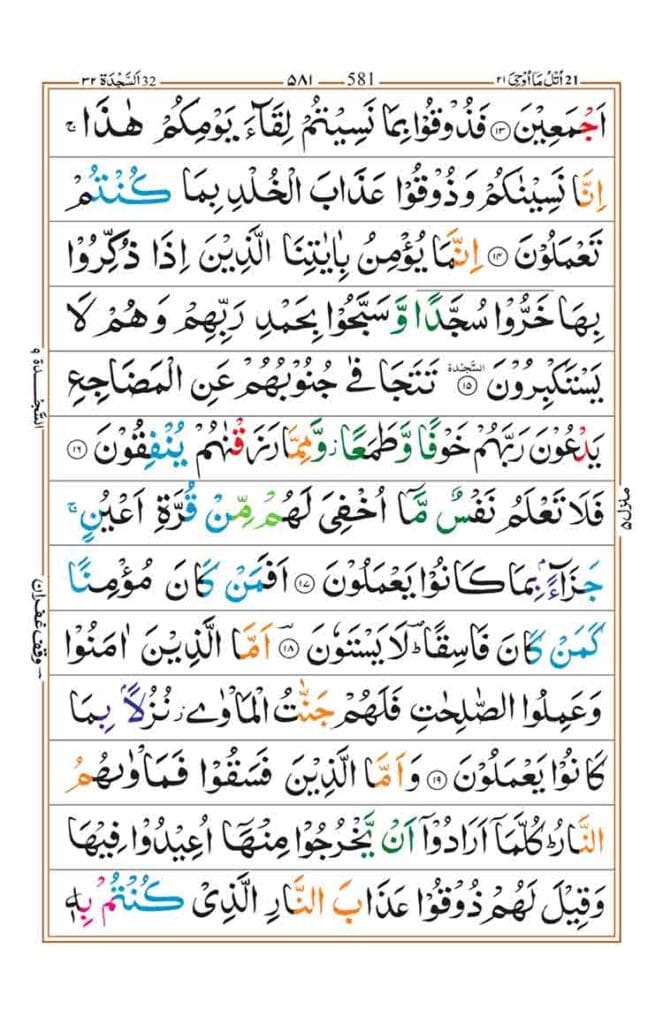 اُتْلُ مَاۤ اُوْحِیَ ٢١ 21 581 ٥٨١ اَلسَّجْدَة ٣٢ 32
اَجْمَعِیْنَ ۝١٣ فَذُوْقُوْا بِمَا نَسِیْتُمْ لِقَآءَ یَوْمِكُمْ هٰذَا ۚ
اِنَّا نَسِیْنٰكُمْ وَ ذُوْقُوْا عَذَابَ الْخُلْدِ بِمَا كُنْتُمْ
تَعْمَلُوْنَ ۝١٤ اِنَّمَا یُؤْمِنُ بِاٰیٰتِنَا الَّذِیْنَ اِذَا ذُكِّرُوْا
بِهَا خَرُّوْا سُجَّدًا وَّ سَبَّحُوْا بِحَمْدِ رَبِّهِمْ وَ هُمْ لَا
یَسْتَكْبِرُوْنَ ۝١٥ السَّجْدَة تَتَجَافٰی جُنُوْبُهُمْ عَنِ الْمَضَاجِعِ
یَدْعُوْنَ رَبَّهُمْ خَوْفًا وَّ طَمَعًا ؗ وَّ مِمَّا رَزَقْنٰهُمْ یُنْفِقُوْنَ ۝١٦
فَلَا تَعْلَمُ نَفْسٌ مَّاۤ اُخْفِیَ لَهُمْ مِّنْ قُرَّةِ اَعْیُنٍ ۚ
جَزَآءًۢ بِمَا كَانُوْا یَعْمَلُوْنَ ۝١٧ اَفَمَنْ كَانَ مُؤْمِنًا
كَمَنْ كَانَ فَاسِقًا ؔؕ لَا یَسْتَوٗنَ ۝١٨ اَمَّا الَّذِیْنَ اٰمَنُوْا
وَ عَمِلُوا الصّٰلِحٰتِ فَلَهُمْ جَنّٰتُ الْمَاْوٰی ؗ نُزُلًۢا بِمَا
كَانُوْا یَعْمَلُوْنَ ۝١٩ وَ اَمَّا الَّذِیْنَ فَسَقُوْا فَمَاْوٰىهُمُ
النَّارُ ؕ كُلَّمَاۤ اَرَادُوْۤا اَنْ یَّخْرُجُوْا مِنْهَاۤ اُعِیْدُوْا فِیْهَا
وَ قِیْلَ لَهُمْ ذُوْقُوْا عَذَابَ النَّارِ الَّذِیْ كُنْتُمْ بِهٖ
السَّجْدَة ٩
وقف غفران
منزل ٥